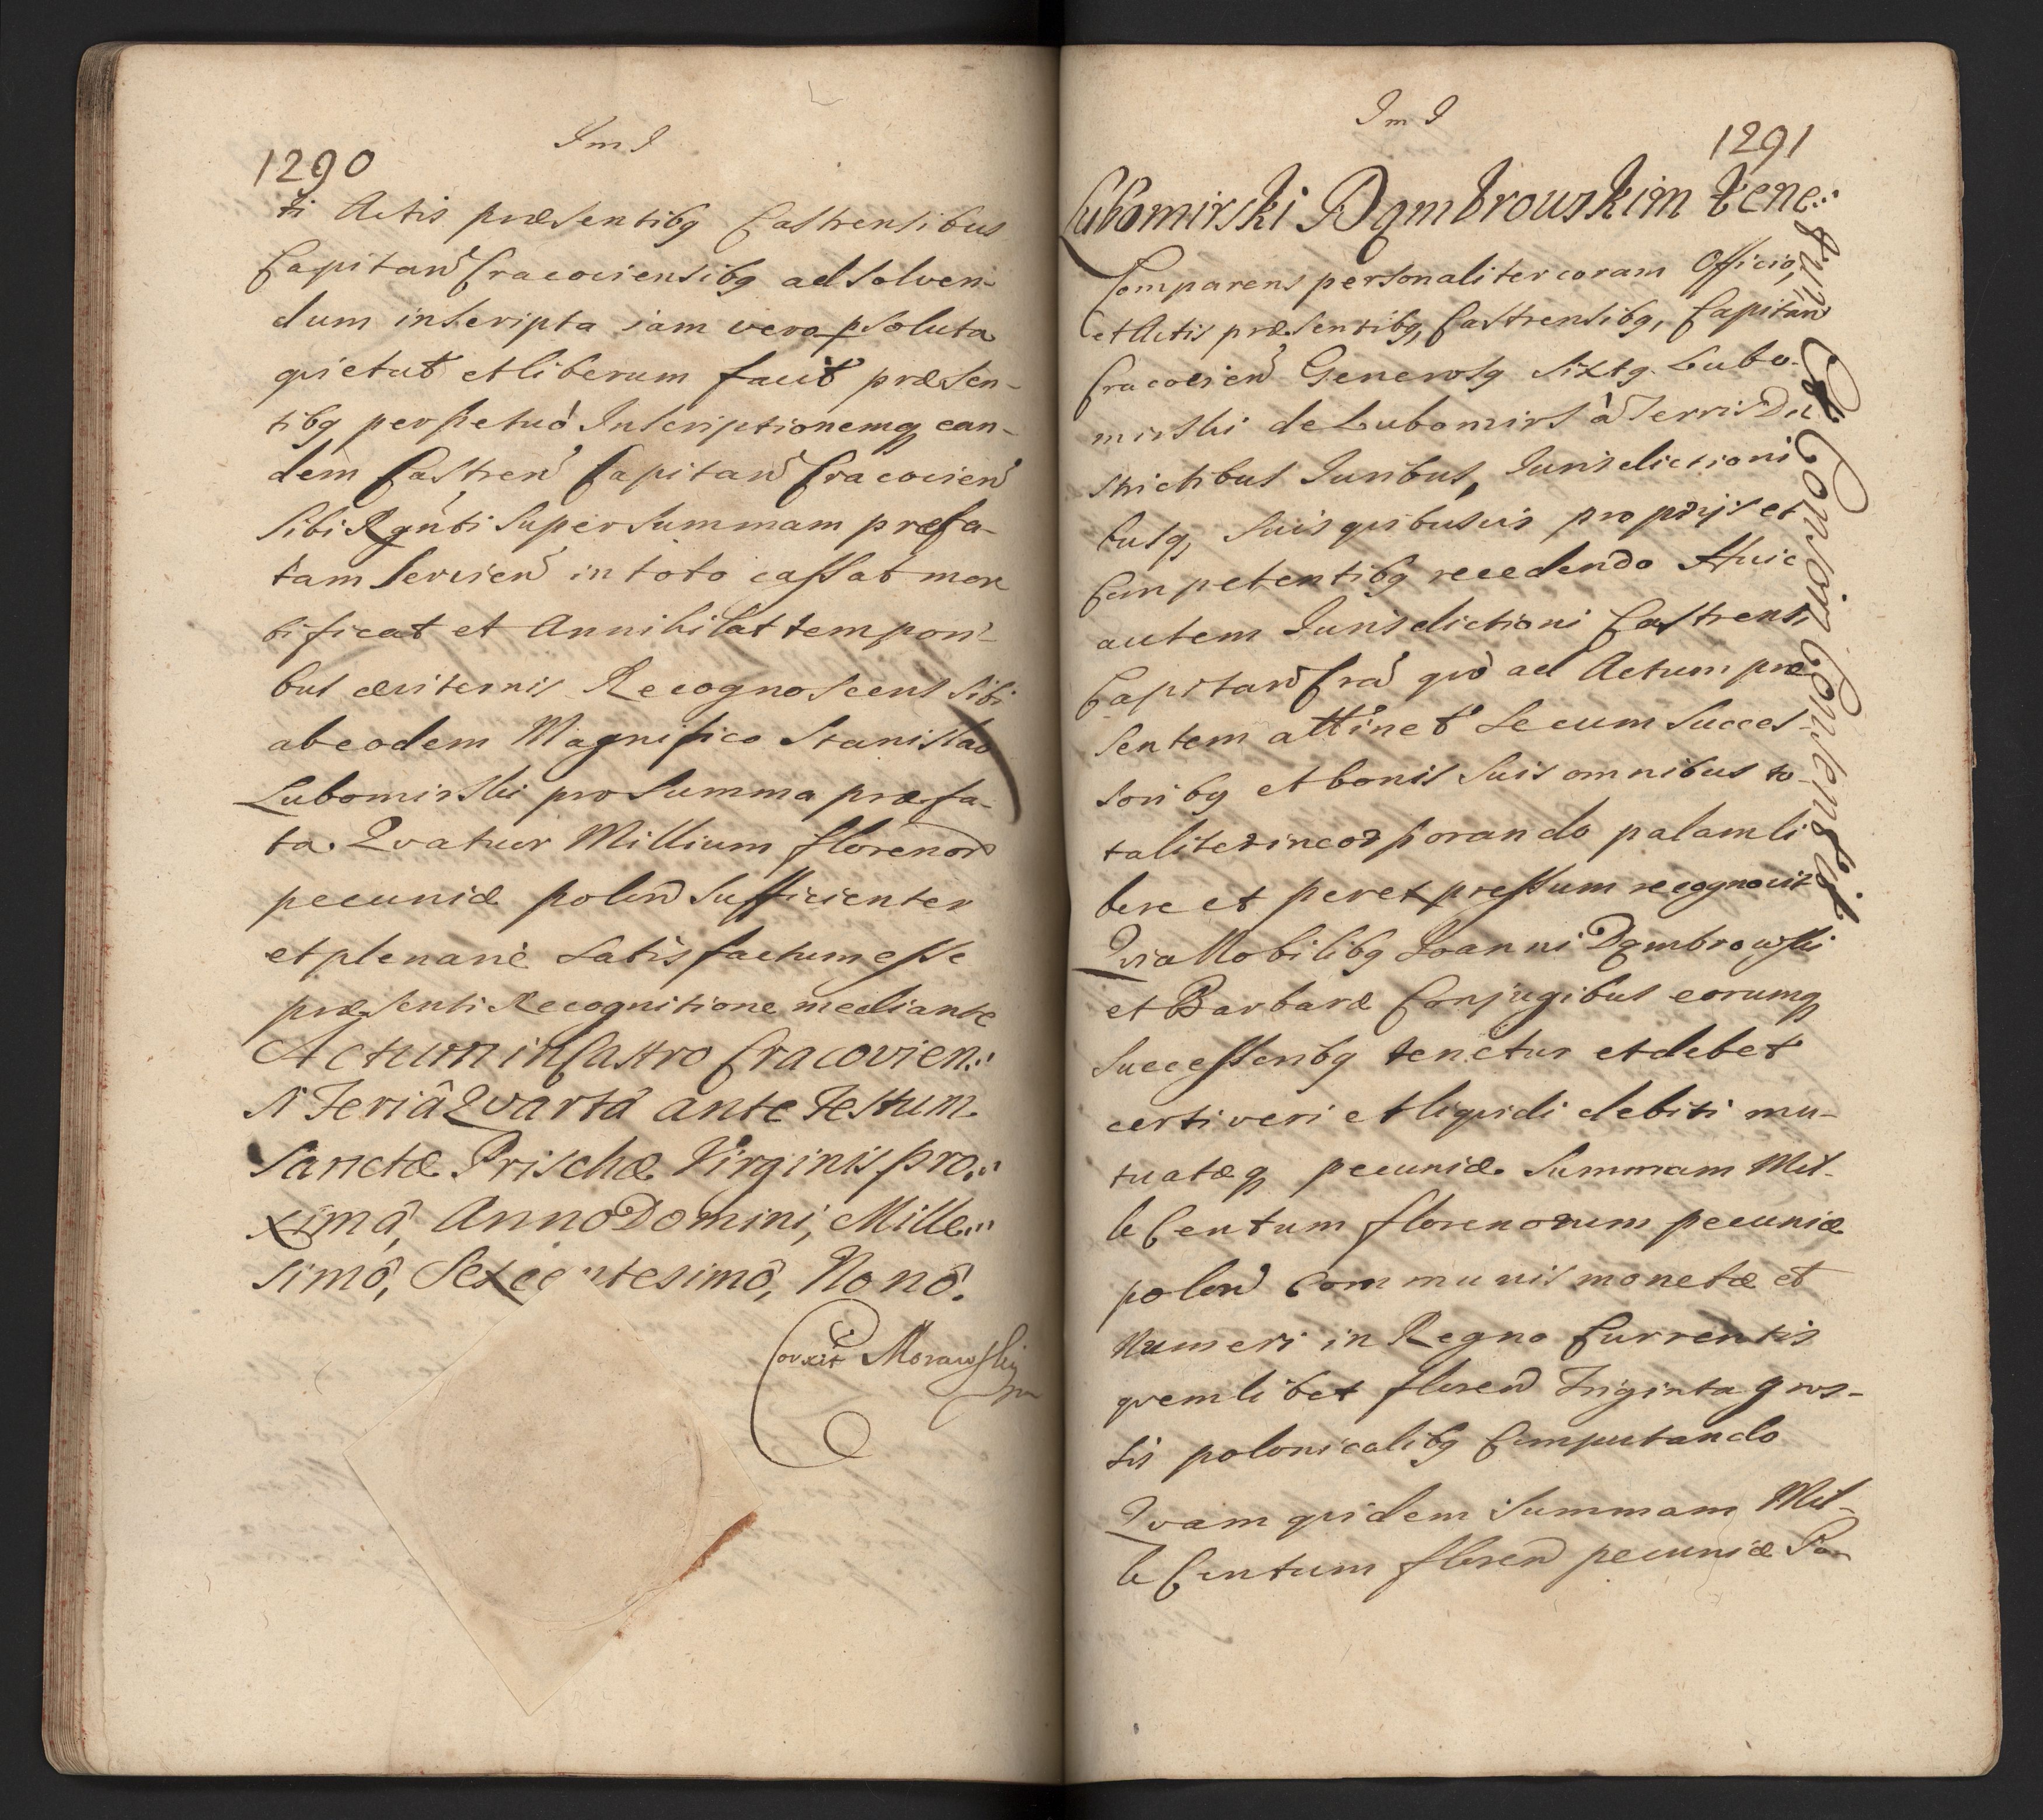 1290
Im I
ti Actis præsentibq Castrensibus
Capitan Cracoviensibq ad solven-
dum inscripta iam vero psoluta
qvietat et liberum facit præsen-
tibq perpetuò Inscriptionemq ean-
dem Castren Capitan Cracovien
sibi Rgnti super summam præfa-
tam servien in toto cassat mor
tificat et Annihilat tempori-
bus æviternis Recognoscens sibi
ab eodem Magnifico Stanislao
Lubomirski pro summa præfa-
ta Qvatuor Millium florenor
pecuniæ polon sufficienter
et plenariè satisfactum esse
præsenti Recognitione mediante
Actum in Castro Cracovien:
si Feriâ Qvartâ ante Festum
Sanctæ Prischæ Virginis pro:
ximâ, Anno Domini, Mille:
simô, Sexcentesimô, Nonô.
Correxit Morawski
mp
Im I
1291
Lubomirski Dąmbrouskim tene:
tur
Comparens personaliter coram Officio,
et Actis præsentibq, Castrensibq, Capitan
Cracovien Generosq Sixtq Lubo-
mirski de Lubomirs à Terris Di
strictibus Iuribus, Iurisdictioni
busq, suis qvibusvis proprijs et
Competentibq recedendo Huic
autem Iurisdictioni Castrensi
Capitan Cra qvò ad Actum præ
sentem attinet se cum succes-
soribq et bonis suis omnibus to-
taliter incorporando palam li
bere et per expressum recognovit
Qvia Nobilibq Ioanni Dąmbrowski
et Barbaræ Conjugibus eorumq
successoribq tenetur et debet
certi veri et liqvidi debiti mu-
tuatæq pecuniæ summam Mil-
le Centum florenorum pecuniæ
polon Communis monetæ et
Numeri in Regno Currentis
qvemlibet floren Triginta gros-
sis polonicalibq Computando
Qvam qvidem summam Mil-
le Centum floren pecuniæ Po-